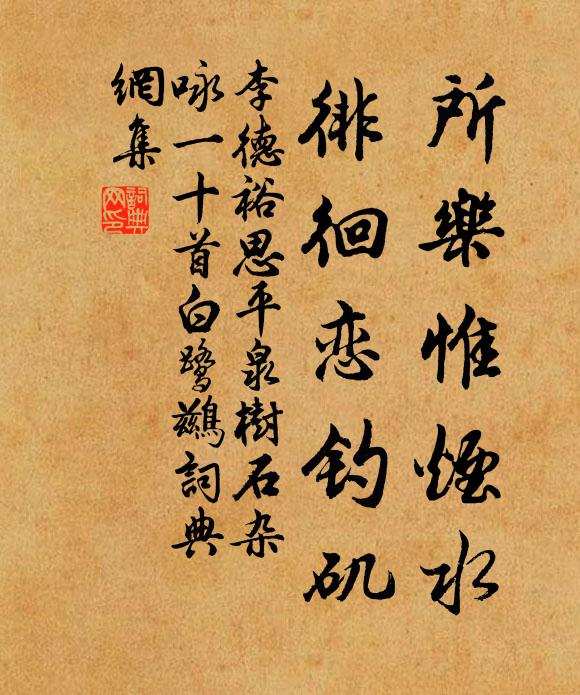 所樂惟煙水
徘徊恋钓矶
李德裕思平泉樹石杂
咏一十首白鹭鷀詞典
網集
詞典网印